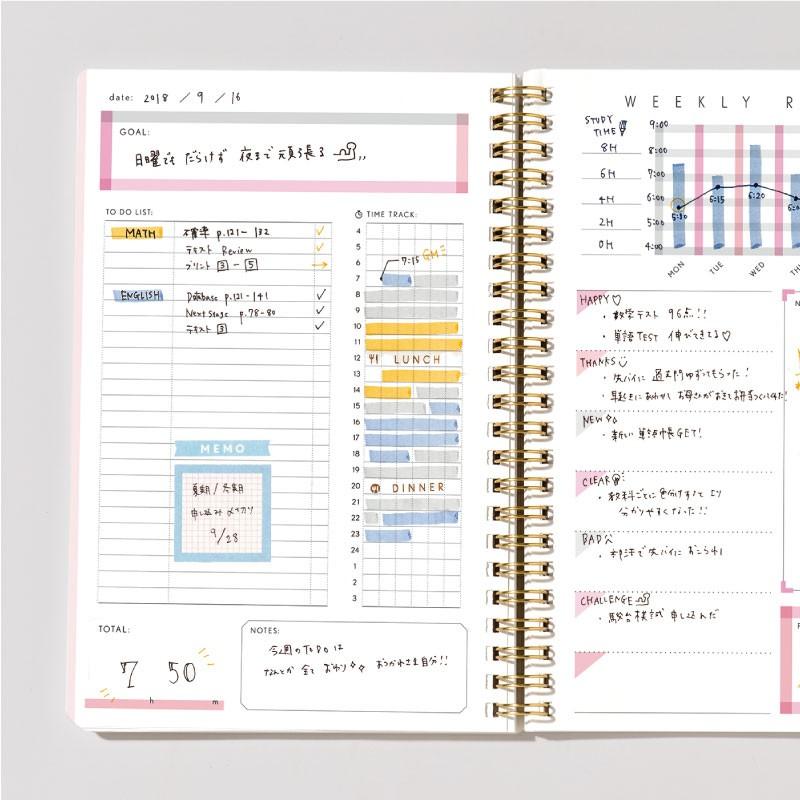 date: 2018 / 9 / 16
GOAL:
日曜でもだらけず 夜まで頑張る
TO DO LIST:
MATH 確率 p.121 - 132
テキスト Review
プリント 3 - 5
ENGLISH Database p.121 - 141
Next Stage p.78 - 80
テキスト 3
MEMO
夏期 / 冬期
申し込み〆切り
9/28
TIME TRACK:
4
5
6
7:15 GM
7
8
9
10
11
12 LUNCH
13
14
15
16
17
18
19
20 DINNER
21
22
23
24
1
2
3
TOTAL:
7 h 50 m
NOTES:
今週のTODOは
なんとか 全て おわり おつかれさま自分!!
WEEKLY R
STUDY TIME
8H
6H
4H
2H
0H
9:00
8:00
7:00
6:00
5:00
4:00
5:30
6:15
6:20
6:0
MON
TUE
WED
THU
HAPPY♡
・数学テスト 96点!!
・単語TEST 伸びてきてる♡
THANKS
・先パイに 過去問ゆずってもらった!
・早起きにあわせ お母さんがおきてお弁当つくってくれた!
NEW
・新しい 単語帳GET!
CLEAR
・教科ごとに色分けするとより
分かりやすくなった!!
BAD
・部活で先パイに おこられ
CHALLENGE
・駿台模試 申し込んだ